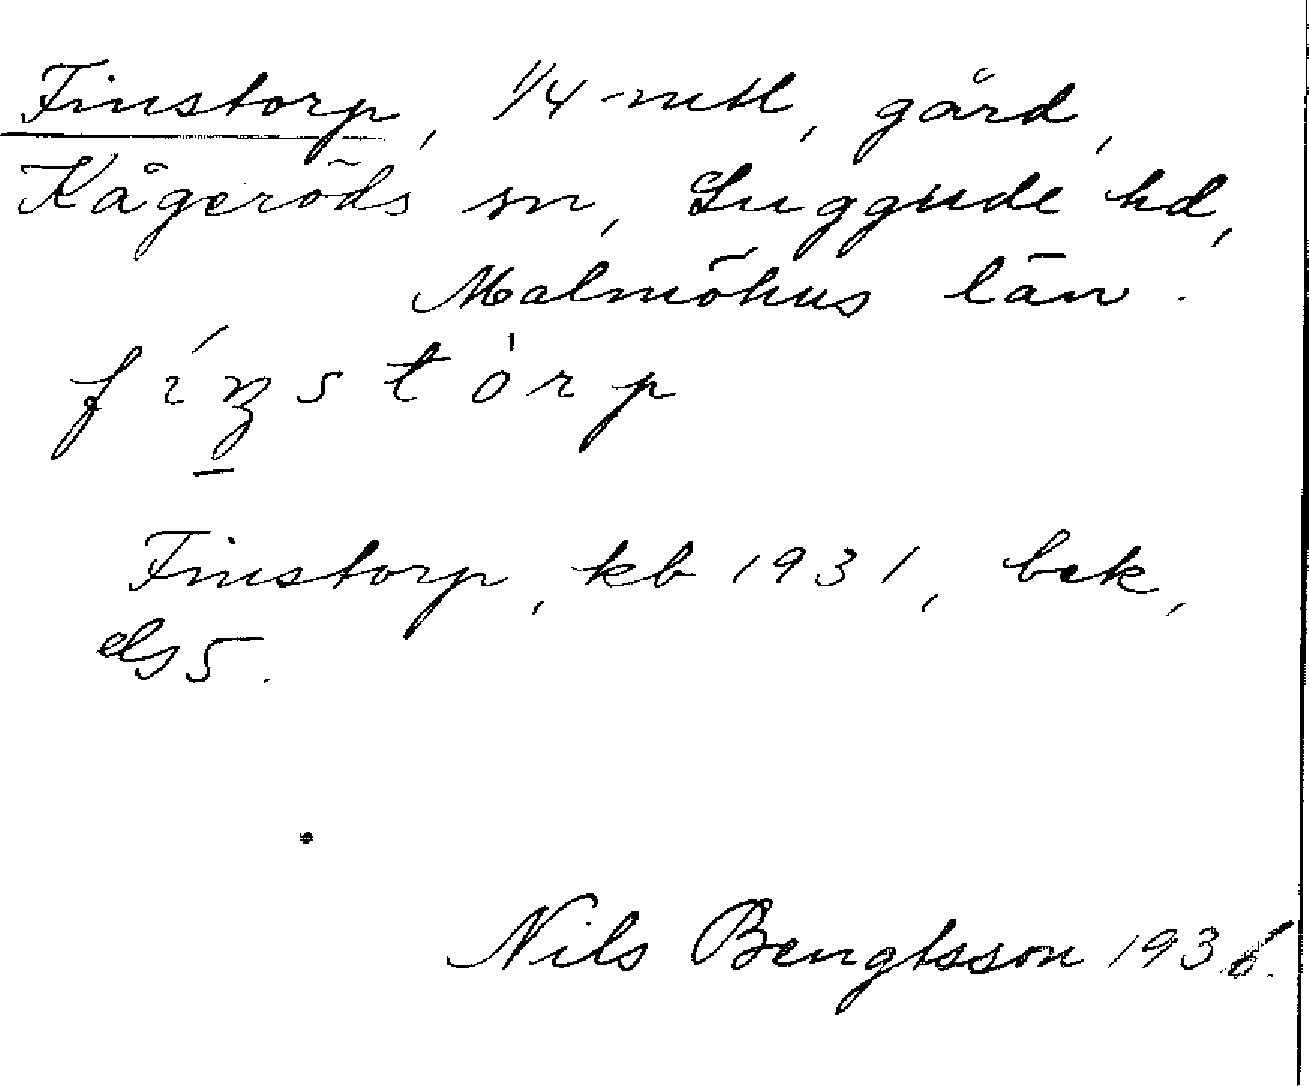 Finstorp, 1/4 mtl, gård,
Kågeröds sn, Luggude hd,
Malmöhus län.
Finstorp, kb 1931, bek,
GS5.
Nils Bengtsson 1936.